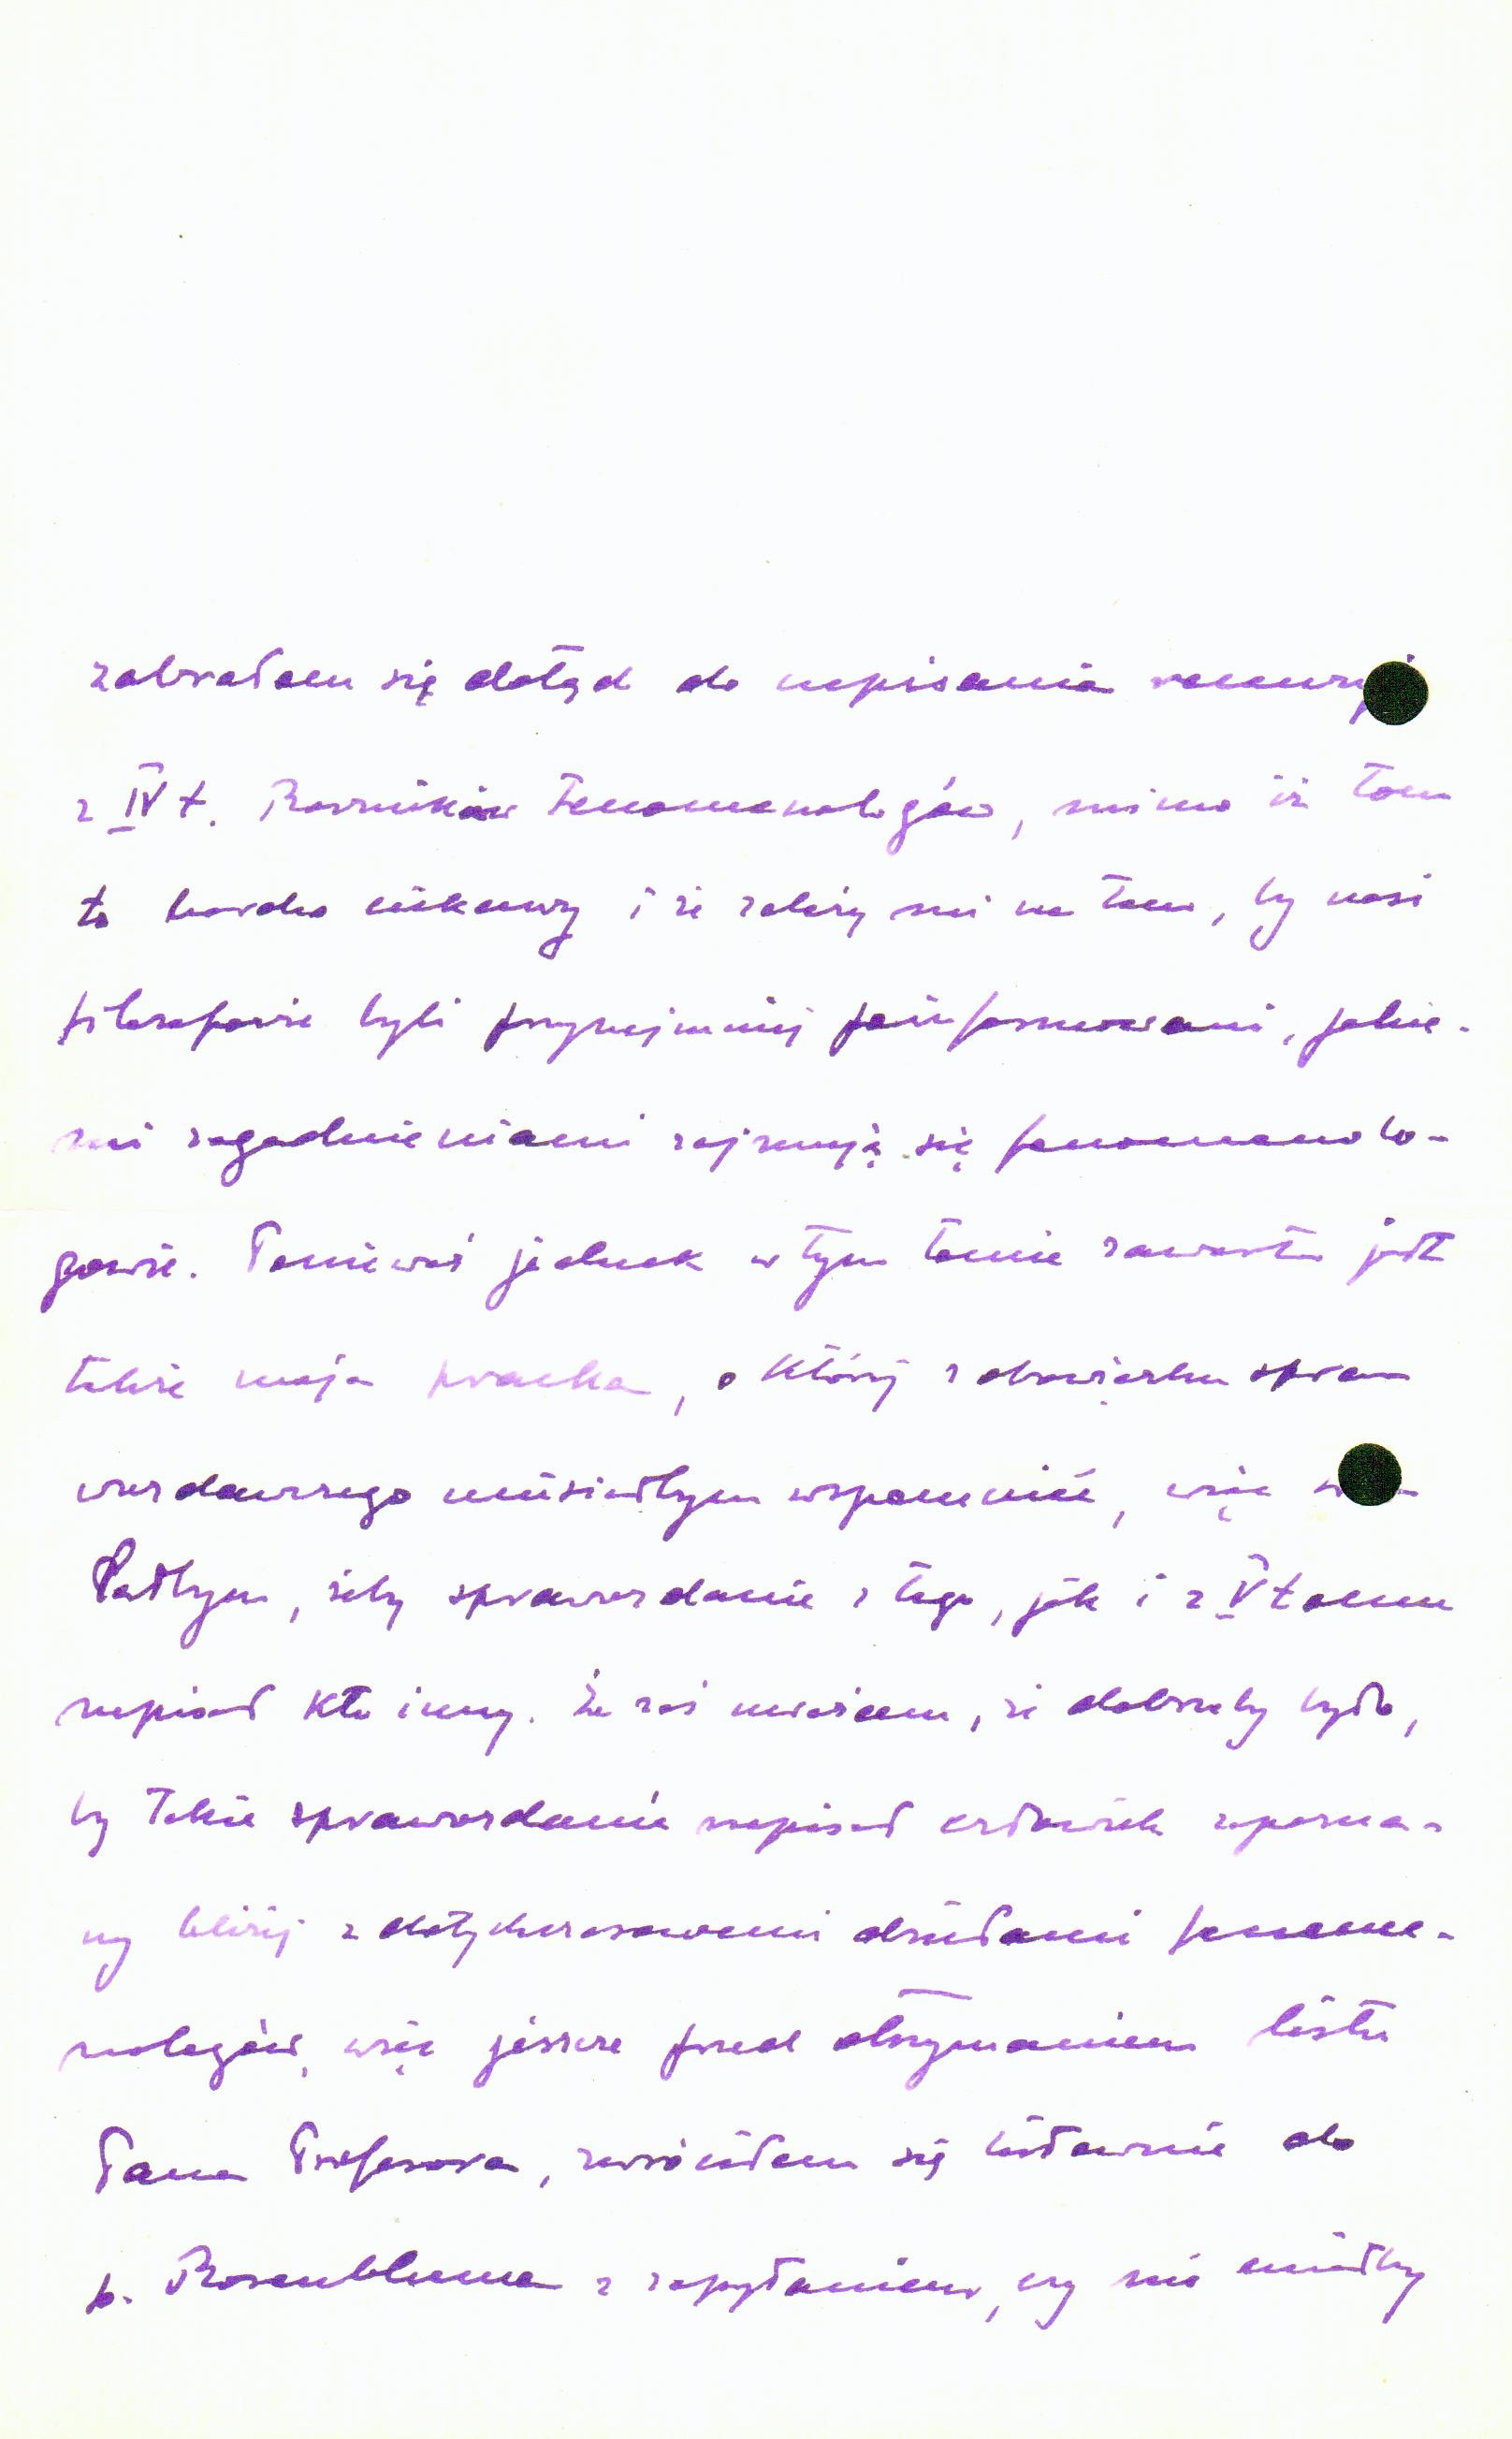 zabrałem się dotąd do napisania recenzji
z IV t. Roczników Fenomenologów, mimo iż tom
to bardzo ciekawy i że zależy mi na tem, by nasi
filozofowie byli przynajmniej poinformowani, jakie-
mi zagadnieniami zajmują się fenomenolo-
gowie. Ponieważ jednak w tym tomie zawarta jest
także moja praca, o której z obowiązku spra-
wozdawczego musiałbym wspomnieć, więc
łałbym, żeby sprawozdanie z tego, jak i z V tomu
napisał kto inny. Że zaś uważam, że dobrze by było,
by takie sprawozdanie napisał człowiek zapozna-
ny bliżej z dotychczasowemi dziełami fenome-
nologów, więc jeszcze przed otrzymaniem listu
Pana Profesora, zwróciłem się listownie do
p. Rosenbluma z zapytaniem, czy nie mógłby